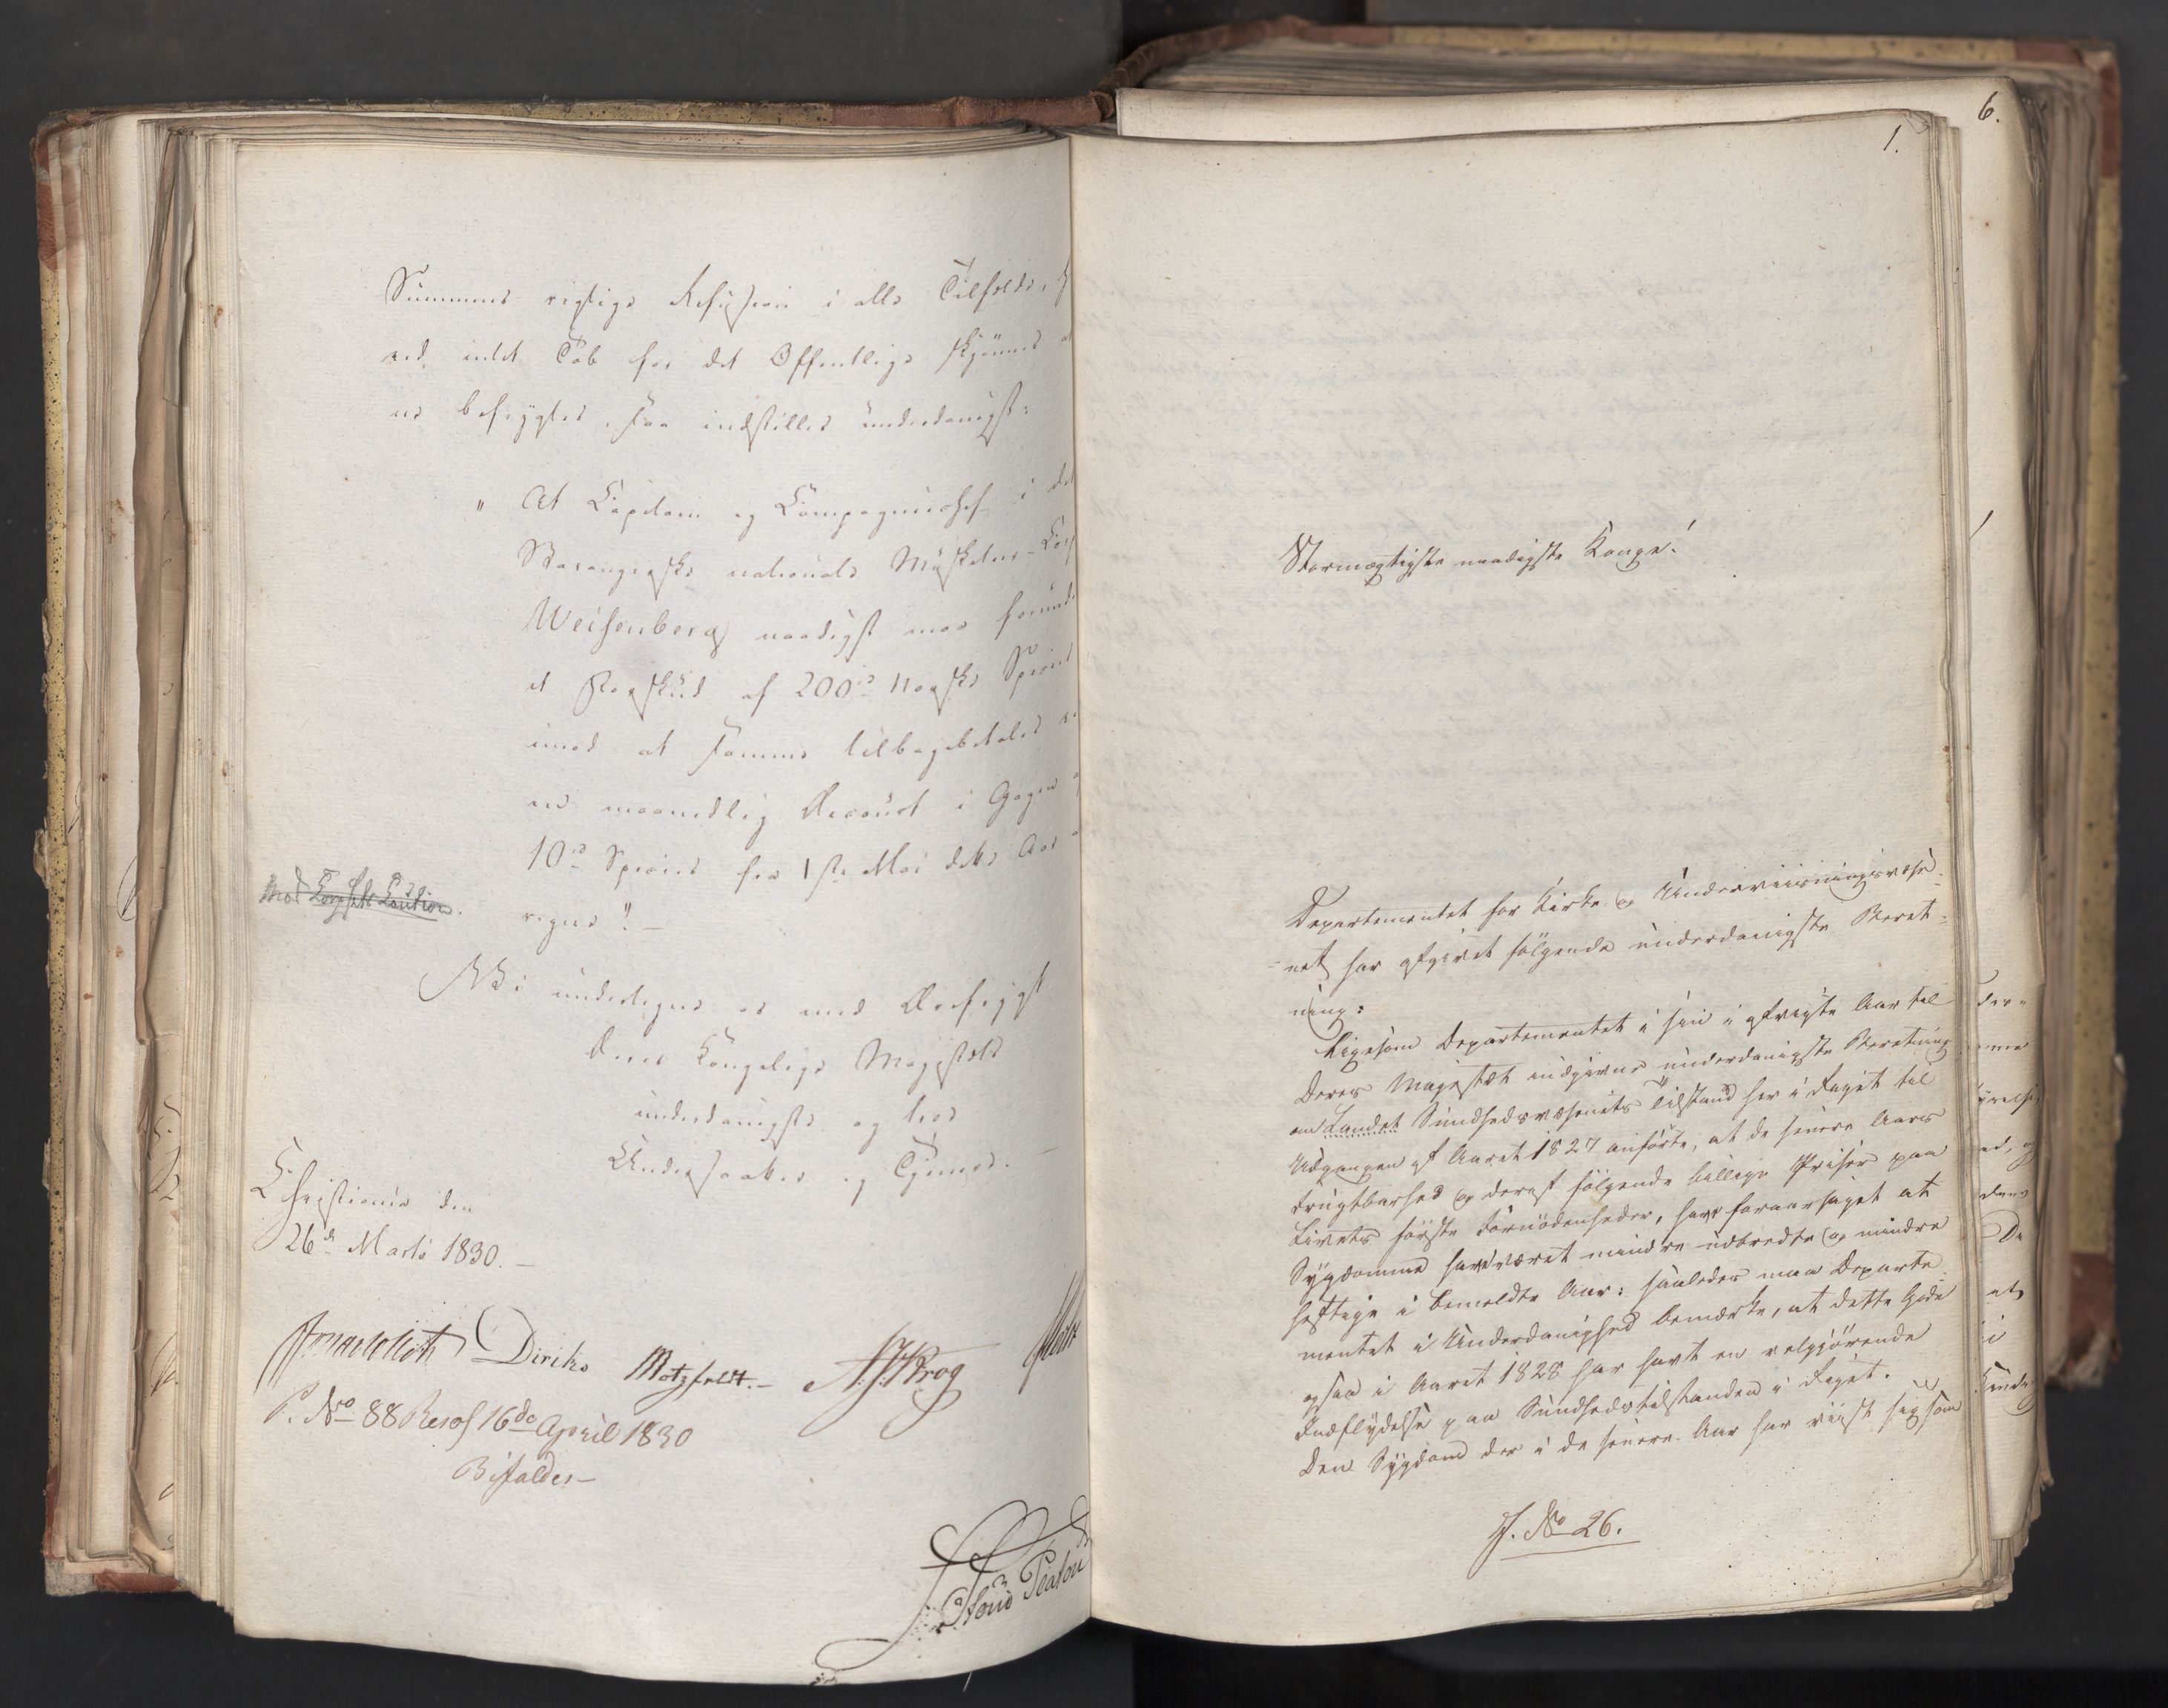 Summens rigtige Refusion i alle Tilfælde,
ved intet Tab for det Offentlige skjønnes at
ne befrygtes, saa indstilles underdanigst:
" At Capitain og Compagniechef i det
Bergenske nationale Musketeer-Corps
Weisenberg naadigst maa forundes
et Forskud af 200de Norske Species
imod at samme tilbagebetales
en maanedlig Decourt i Gagen
10de Species fra 1ste Mai dette Aar
regnet". -
mod Corpsets Caution.
Vi undertegne os med Ærefrygt
Deres Kongelige Majestæts
underdanigste og troe
Undersaatter og Tjenere. -
Christiania den
26de Marts 1830. -
Diriks Motzfeldt. - Krog
P. No 88 Resol 16de April 1830
Bifaldes -
6.
1.
Stormægtigste naadigste Konge!
Departementet for Kirke og Underviisningsvæse-
-net har afgivet følgende underdanigste Beret-
ning:
Ligesom Departementet i sin i afvigte Aar til
Deres Majestæt indgivne underdanigste Beretning
om Landets Sundhedsvæsenets Tilstand her i Riget til
Udgangen af Aaret 1827 anførte, at de senere Aars
Frugtbarhed og deraf følgende billige Priser paa
Livets første Fornødenheder, have foraarsaget at
Sygdomme have været mindre udbredte og mindre
heftige i bemeldte Aar: saaledes maa Departe-
mentet i Underdanighed bemærke, at dette Gode
ogsaa i Aaret 1828 har havt en velgjørende
Indflydelse paa Sundhedstilstanden i Riget.
Den Sygdom der i de senere Aar har viist sig som
J. No 26.